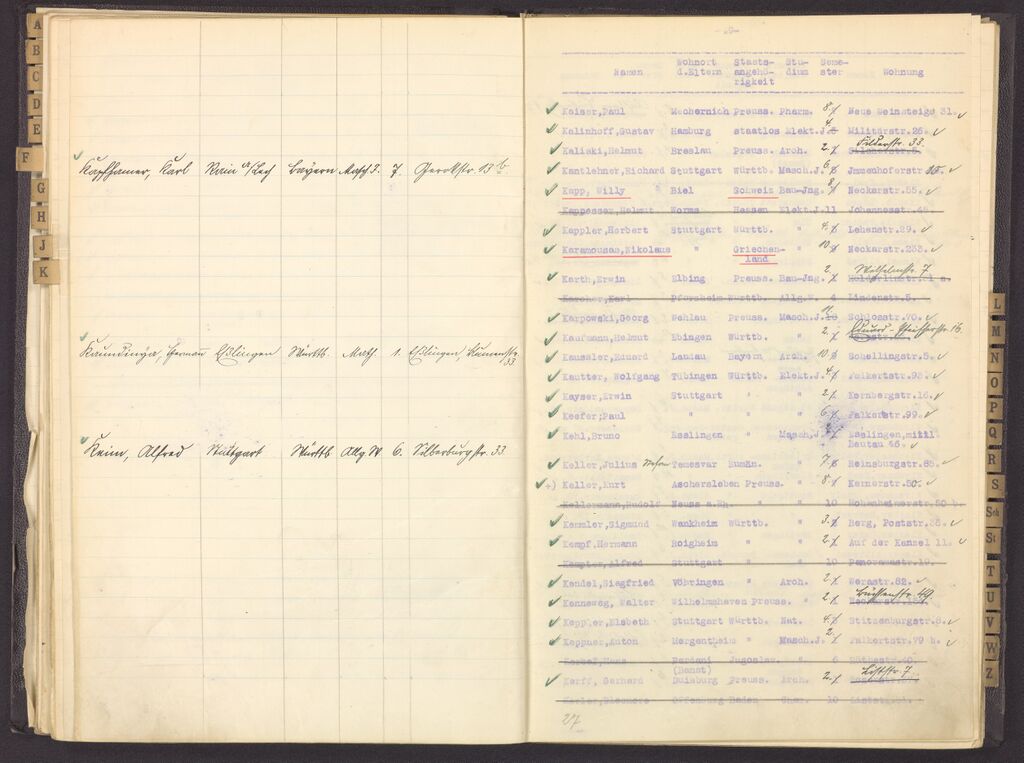 A
B
C
D
E
F
G
H
J
K
Kapfhamer, Karl Rain a/Lech Bayern Masch J. 7. Gerokstr. 13 b
Hermann Eßlingen Württb. Math 1. Eßlingen, 33
Keim, Alfred Stuttgart Württb Allg. W 6. Silberburgstr. 33
Namen Wohnort d.Eltern Staats-angehö-rigkeit Stu-dium Seme-ster Wohnung
Kaiser,Paul Mechernich Preuss. Pharm. 8. Neue Weinsteige 31.
Kalinhoff,Gustav Hamburg staatlos Elekt.J. 4. Militärstr.26.
Kaliski,Helmut Breslau Preuss. Arch. 2. Silcherstr.5. 33.
Kantlehner,Richard Stuttgart Württb. Masch.J. 6. Immenhoferstr
Kapp, Willy Biel Schweiz Bau-Jng. 8. Neckarstr.55.
Kappesser,Helmut Worms Hessen Elekt.J.11 Johannesstr.
Kappler,Herbert Stuttgart Württb. " 4. Lehenstr.29.
Karamousas,Nikolaus " Griechen-land " 10 Neckarstr.233.
Karth,Erwin Elbing Preuss. Bau-Jng. 2. 7
Karcher,Karl Pforzheim Württb. Allg.W. 4 Lindenstr.5.
Karpowski,Georg Wehlau Preuss. Masch.J. Schlosstr.70.
Kaufmann,Helmut Ebingen Württb. " 2. Eduard-Pfeifferstr 16.
Kaussler,Eduard Landau Bayern Arch. 10 Schellingstr.5.
Kautter, Wolfgang Tübingen Württb. Elekt.J. 4. Falkertstr.93.
Kayser,Erwin Stuttgart " " 2. Kornbergstr.16.
Keefer,Paul " " " 6. Falkerstr.99.
Kehl,Bruno Esslingen " Masch.J. Esslingen,mittl Beutau 46.
Keller,Julius Temesvar Rumän. " 7. Reinsburgstr.
+) Keller,Kurt Aschersleben Preuss. " 8. Kernerstr.50.
Kellermann,Rudolf Neuss a.Rh. " " 10 Hohenheimerstr.50 b.
Kemmler,Sigmund Wankheim Württb. " 3. Berg, Poststr.
Kempf,Hermann Roigheim " " 2. Auf der Kanzel 11.
Kempter,Alfred Stuttgart " " 10 Panoramastr.19.
Kendel,Siegfried Vöhringen " Arch. 2. Werastr.82.
Kenneweg, Walter Wilhelmshaven Preuss. " 2. Büchsenstr 49.
Keppler,Elsbeth Stuttgart Württb. Nat. 4. Stitzenburgstr.8.
Keppner,Anton Mergentheim " Masch.J. 2. Falkertstr.79 b.
Kerbel,Hans Pardani (Banat) Jugoslav. " 6 Rötestr.40.
Kerff, Gerhard Duisburg Preuss. Arch. 2. Liststr. 7.
Offenburg Baden Chem. 10
27
L
M
N
O
P
Q
R
S
Sch
St
T
U
V
W
Z